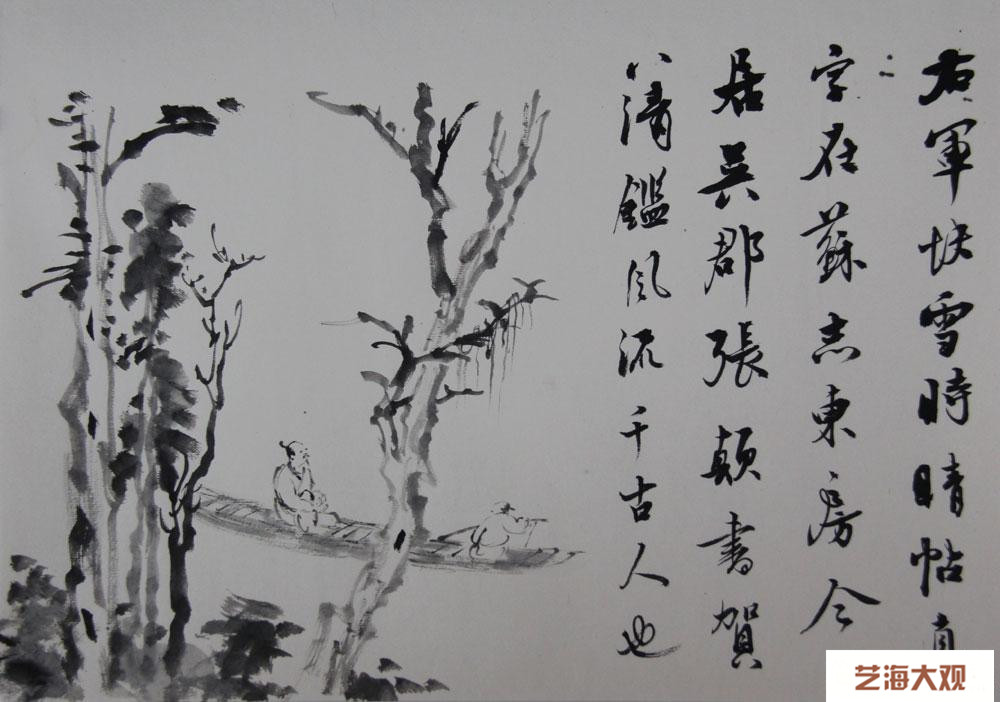 右軍快雪時晴帖真
字在蘇志東房今
居吳郡張顛書賀
八清鑑風流千古人也
艺海大观